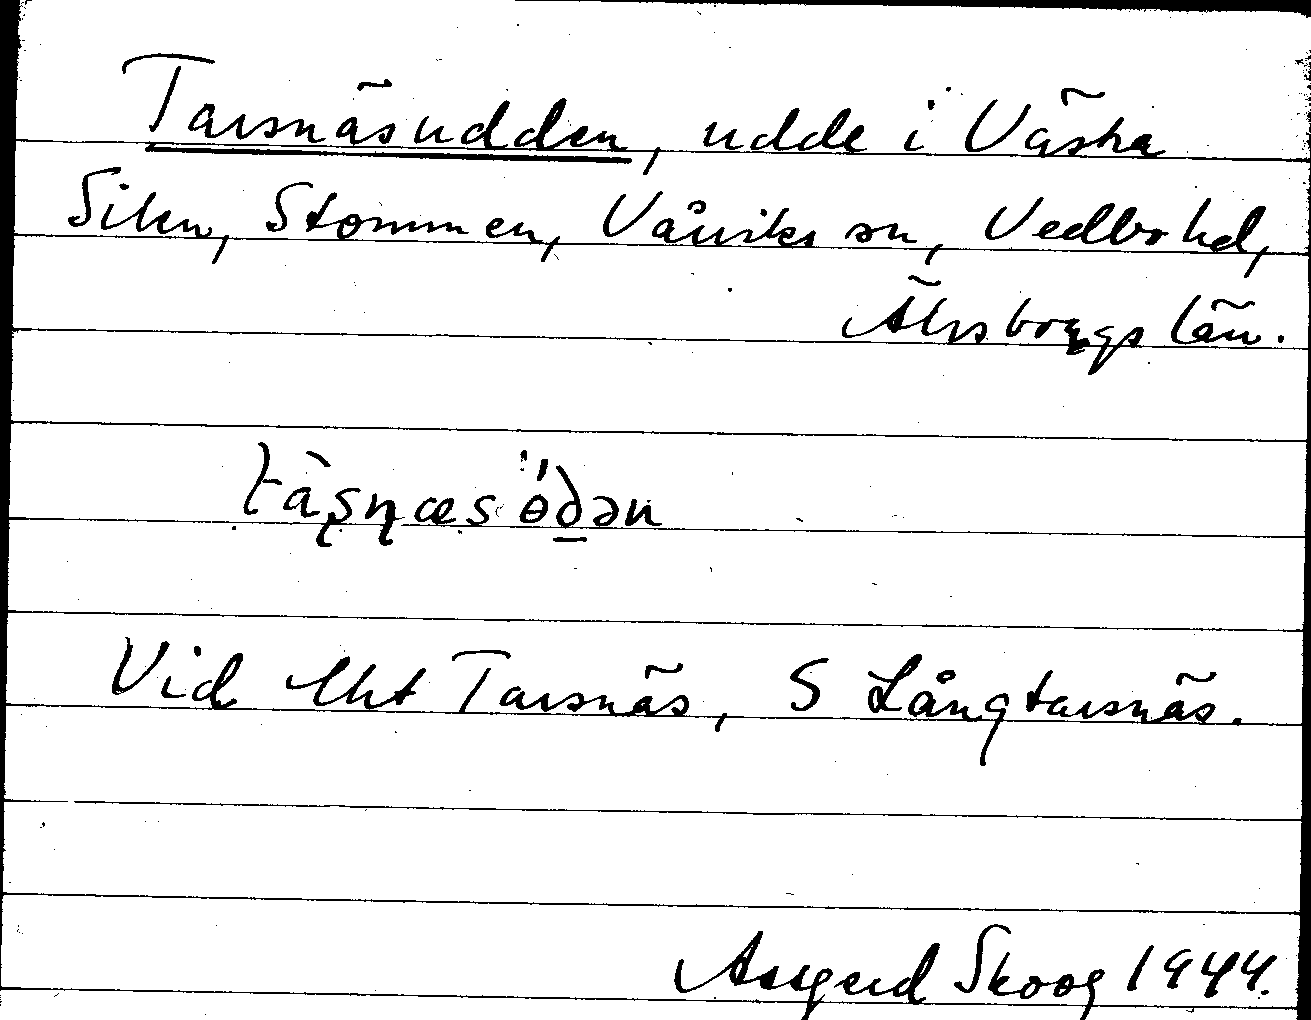 Tarsnäsudden, udde i Västra
Silen, Stommen, Vårviks sn, Vedbo hd,
Älvsborgs län.
tàʂɳæsö́d̲ən
Vid Mht Tarsnäs, S Långtarsnäs.
Assgerd Skoog 1944.